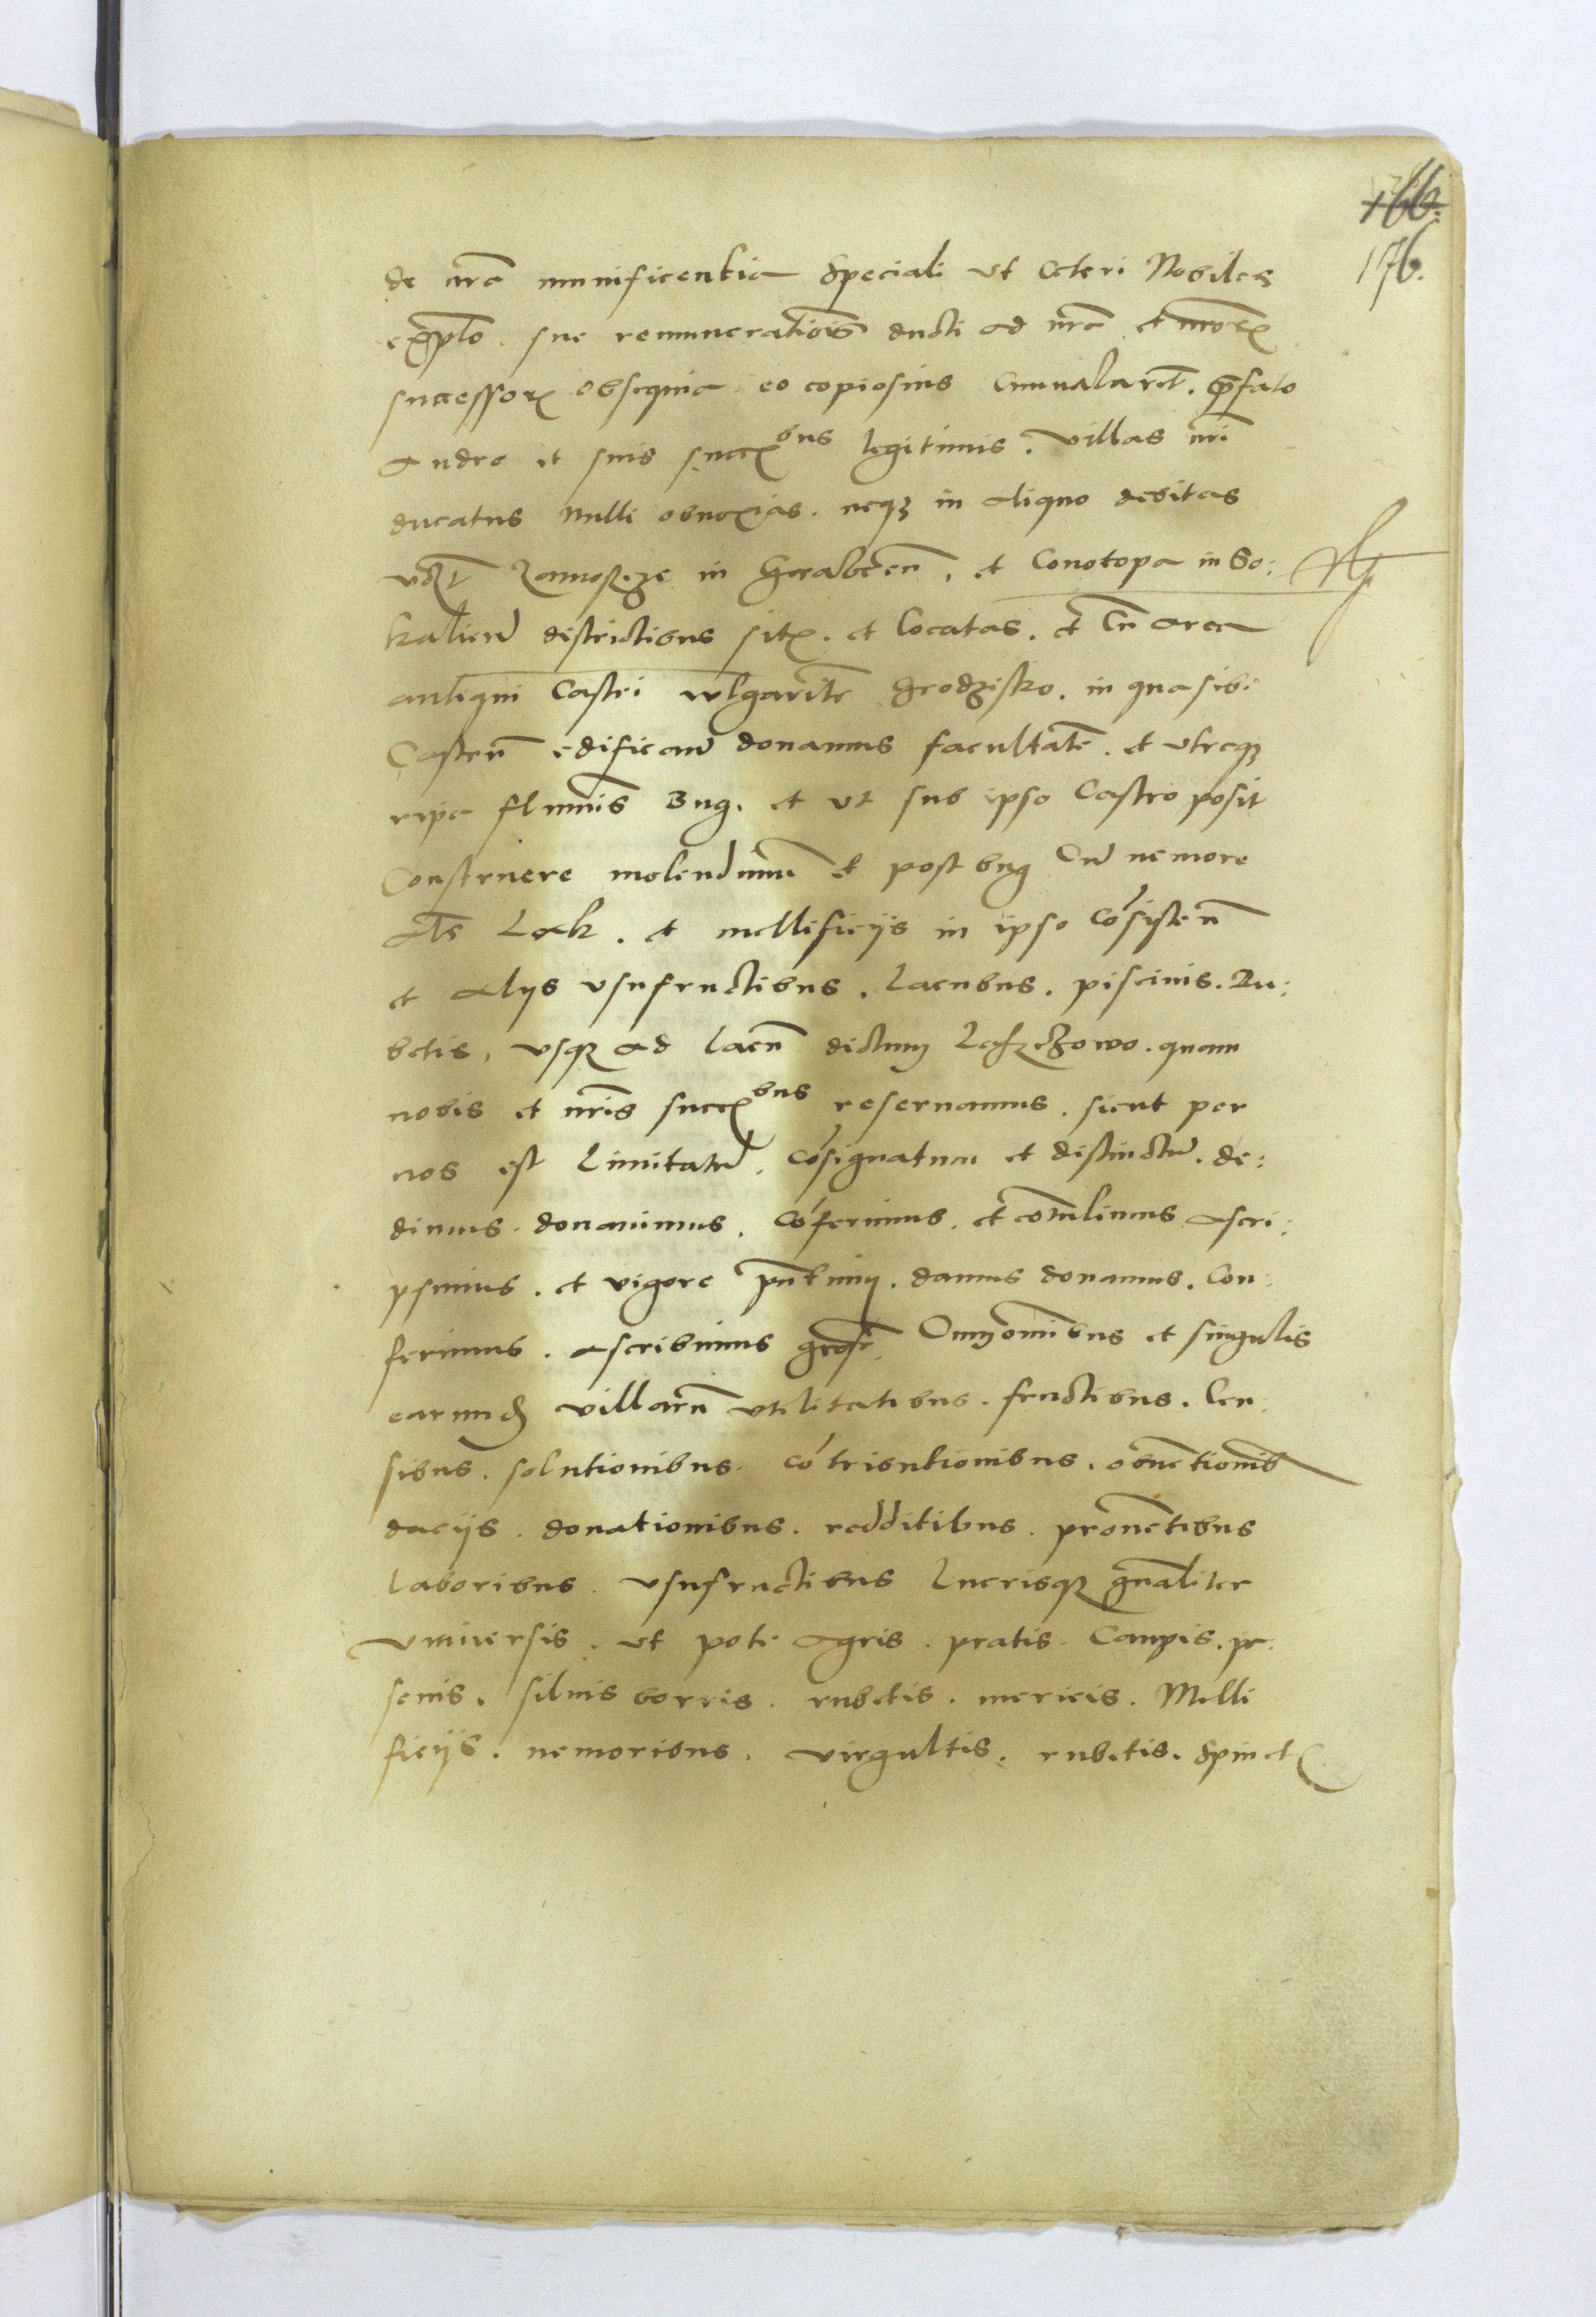 166.
176.
de nr̄a munificentia Speciali ut Ceteri Nobiles
exp̄lo. sue remuneratiōis ducti ad nr̄a et nr̄oꝝ
successoꝝ obsequia eo copiosius Cumularēt. p̄fato
Andree et suis succꝝbus legitimis. villas nr̄i
ducatus nulli obnoxias. neqꝫ in aliquo debitas
vdꝫt Zamoscze in Grabōen̄. et Conotopa in So:
kalien̄ districtibus sitꝭ. et locatas. et Cū area
antiqui Castri wlgarit̄r Grodzisko. in qua sibi
Castrū edifican̄ donamus facultatē. et utreqꝫ
ripe flumīs Bug. et ut sub ipso Castro posit
Construere molendinū et post bug Cū nemore
Al̄s Lak. et mellificijs in ipso Cōsisten̄
et alijs vsufructibus. lacubus. piscinis. Ru:
betis, vsqꝫ ad lacū dictum quam
nobis et nr̄is succꝝbus reseruamus. sicut per
nos est limitatū. Cōsignatum et distinctū. de:
dimus. donauimus. Cōferimus. et cōtulimus ascri:
psimus. et vigore pn̄tium. damus donamus. Con:
ferimus. ascribimus Cum omībus et singulis
earundꝫ villarū vtilitatibus. fructibus. Cen
sibus. solutionibus. cōtributionibus. obuētionib
dacijs. donationibus. redditibus. prouētibus
laboribus. vsufructibus lucrisqꝫ gn̄aliter
vniuersis. ut pote agris. pratis. Campis. pa
scuis. siluis borris. rubetis. mericis. Melli
ficijs. nemoribus. virgultis. rubetis. Spinetꝭ